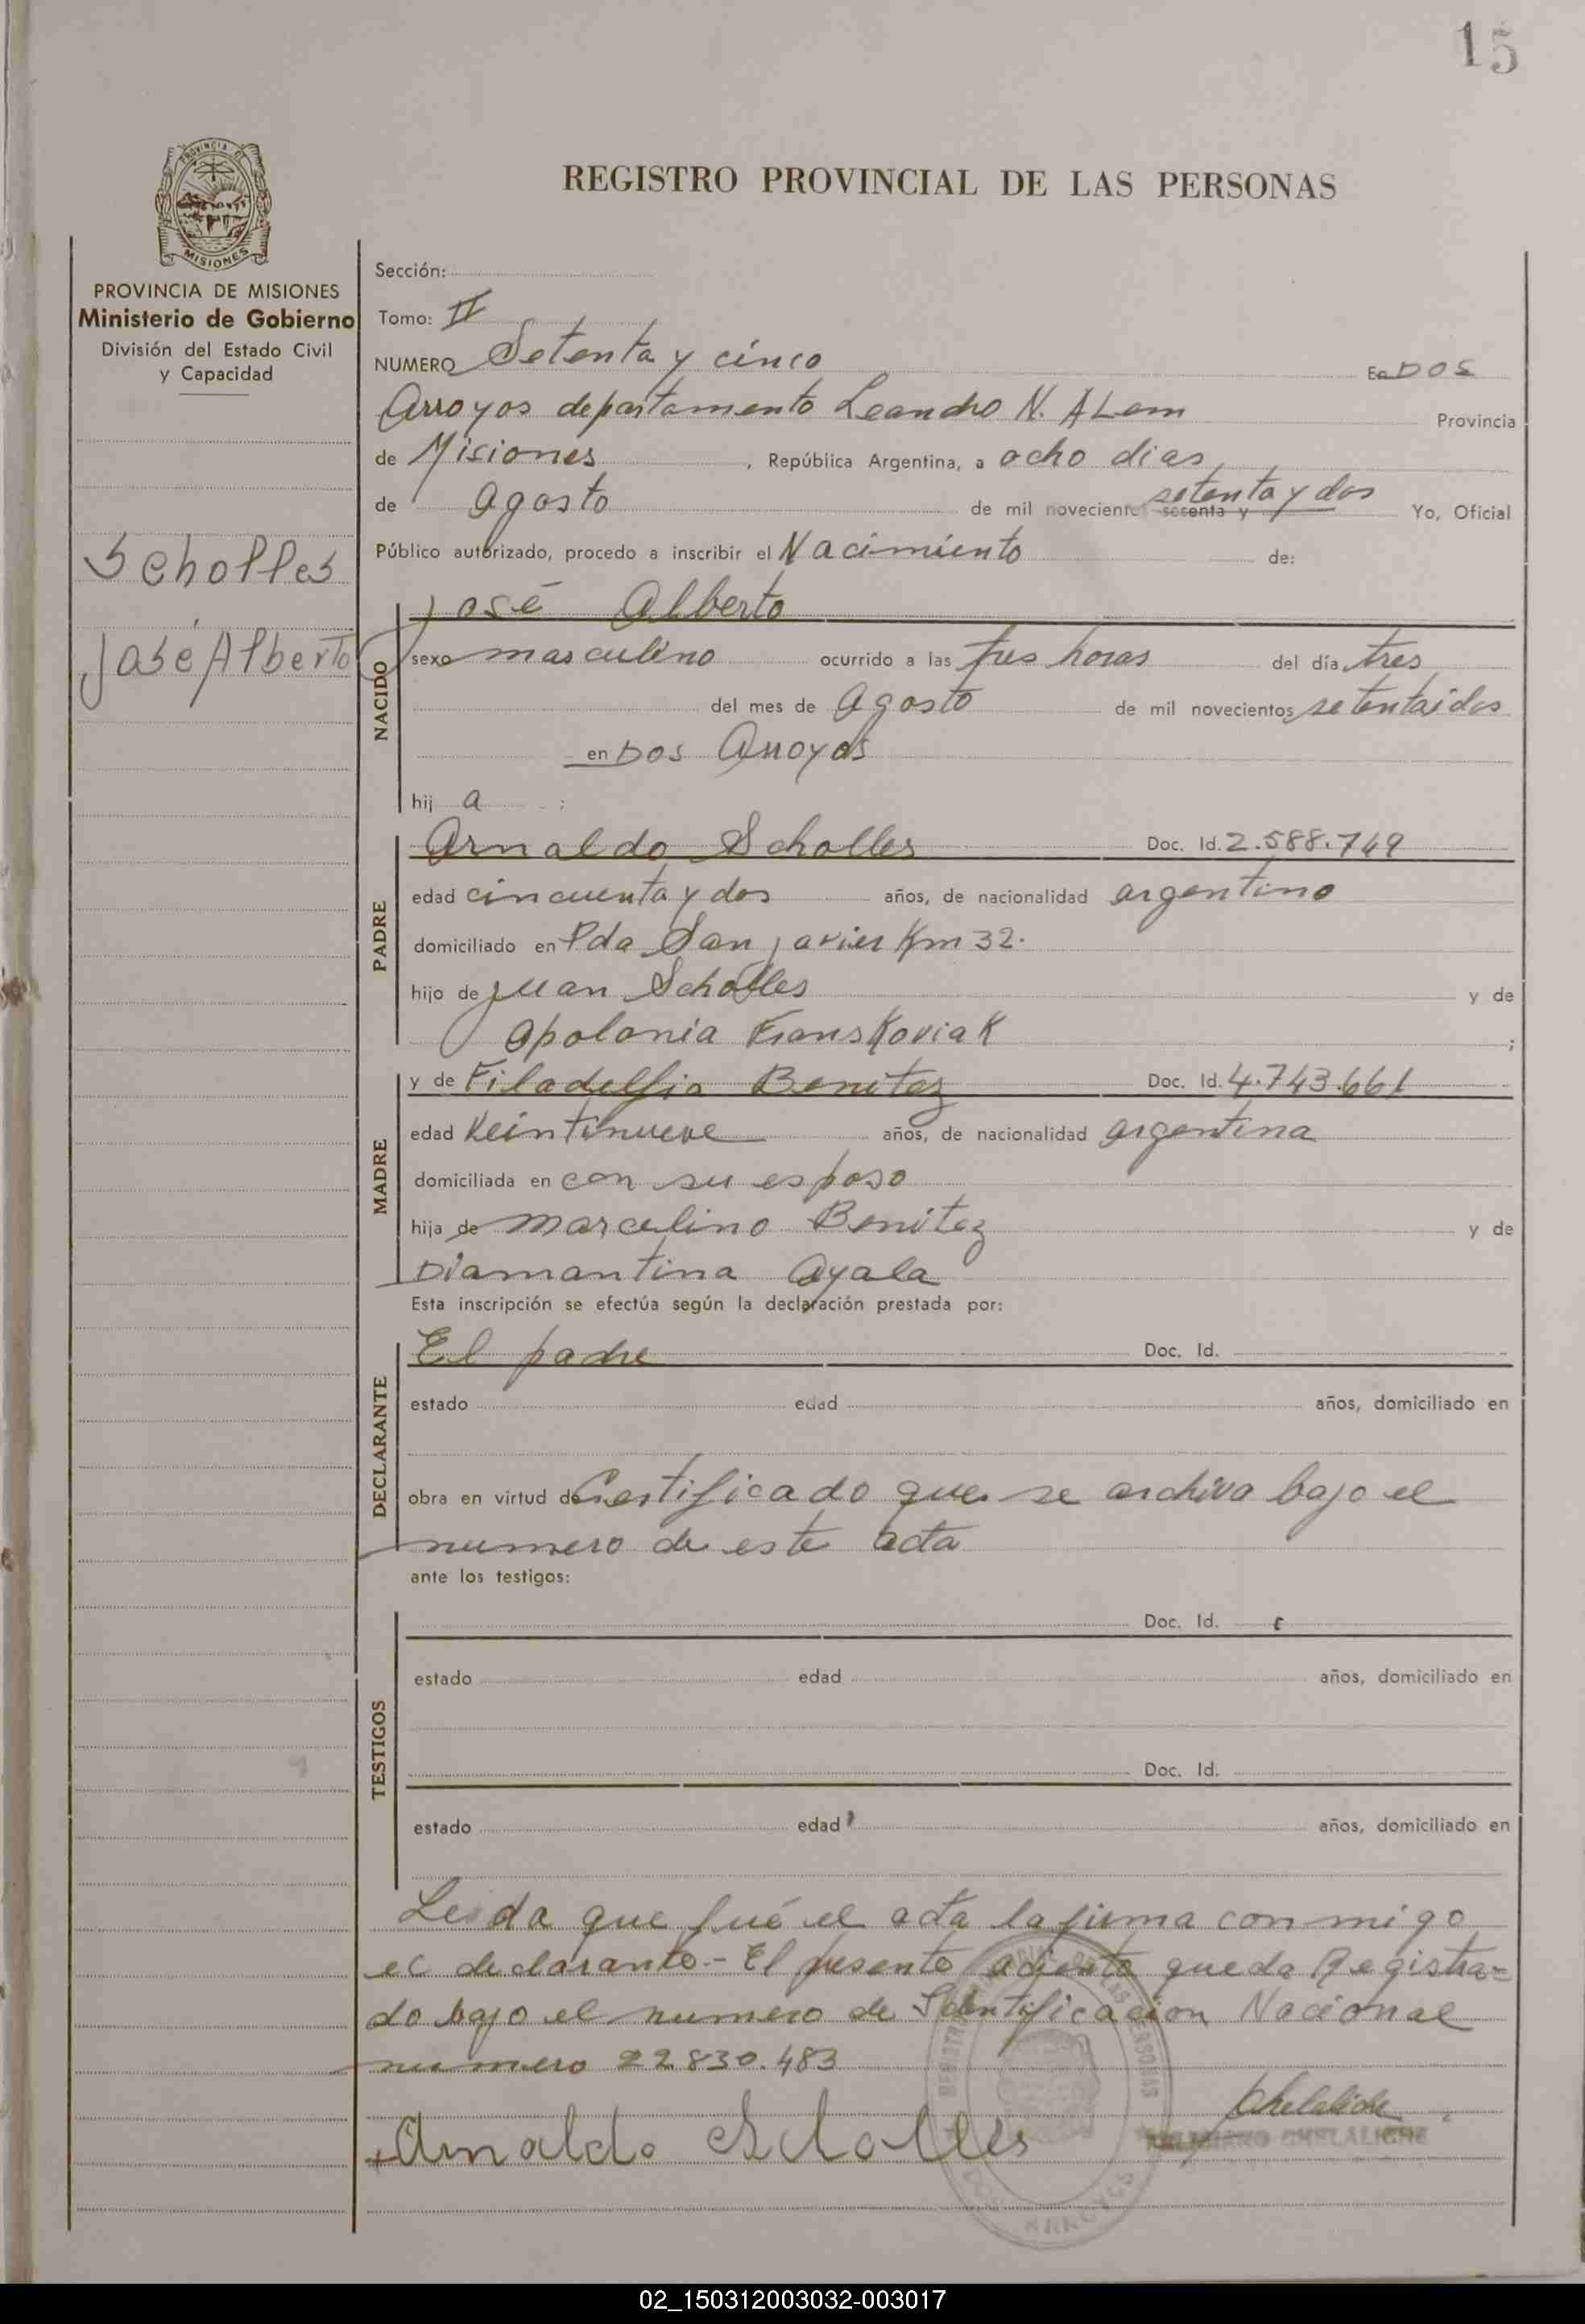 15
PROVINCIA DE
MISIONES
REGISTRO PROVINCIAL DE LAS PERSONAS
PROVINCIA DE MISIONES
Ministerio de Gobierno
División del Estado Civil
y Capacidad
Scholles
José Alberto
Sección:
Tomo: II
NUMERO Setenta y cinco En DOS
Arroyos departamento Leandro N. ALem Provincia
de Misiones , República Argentina, a ocho dias
de Agosto de mil novecientos sesenta y setenta y dos Yo, Oficial
Público autorizado, procedo a inscribir el Nacimiento de:
NACIDO
José Alberto
sexo masculino ocurrido a las tres horas del día tres
del mes de Agosto de mil novecientos setentaidos
en Dos Arroyos
hij a :
PADRE
Arnaldo Scholles Doc. Id. 2.588.749
edad cincuenta y dos años, de nacionalidad argentino
domiciliado en Pda San javier Km 32.
hijo de Juan Scholles y de
Apolonia FransKoviaK ;
MADRE
y de Filadelfia Benitez Doc. Id. 4.743.661
edad Veintinueve años, de nacionalidad argentina
domiciliada en con su esposo
hija de Marcelino Benitez y de
Diamantina Ayala
Esta inscripción se efectúa según la declaración prestada por:
DECLARANTE
El padre Doc. Id.
estado edad años, domiciliado en
obra en virtud de Certificado que se archiva bajo el
numero de este acta
ante los testigos:
TESTIGOS
Doc. Id.
estado edad años, domiciliado en
Doc. Id.
estado edad años, domiciliado en
Leida que fué el acta la firma conmigo
el declarante.- El presente adjesto queda Registra-
do bajo el numero de Identificacion Nacional
numero 22.830.483
Arnaldo Scholles
Chelaliche
CHELALICHE
DOS ARROYOS
02_150312003032-003017